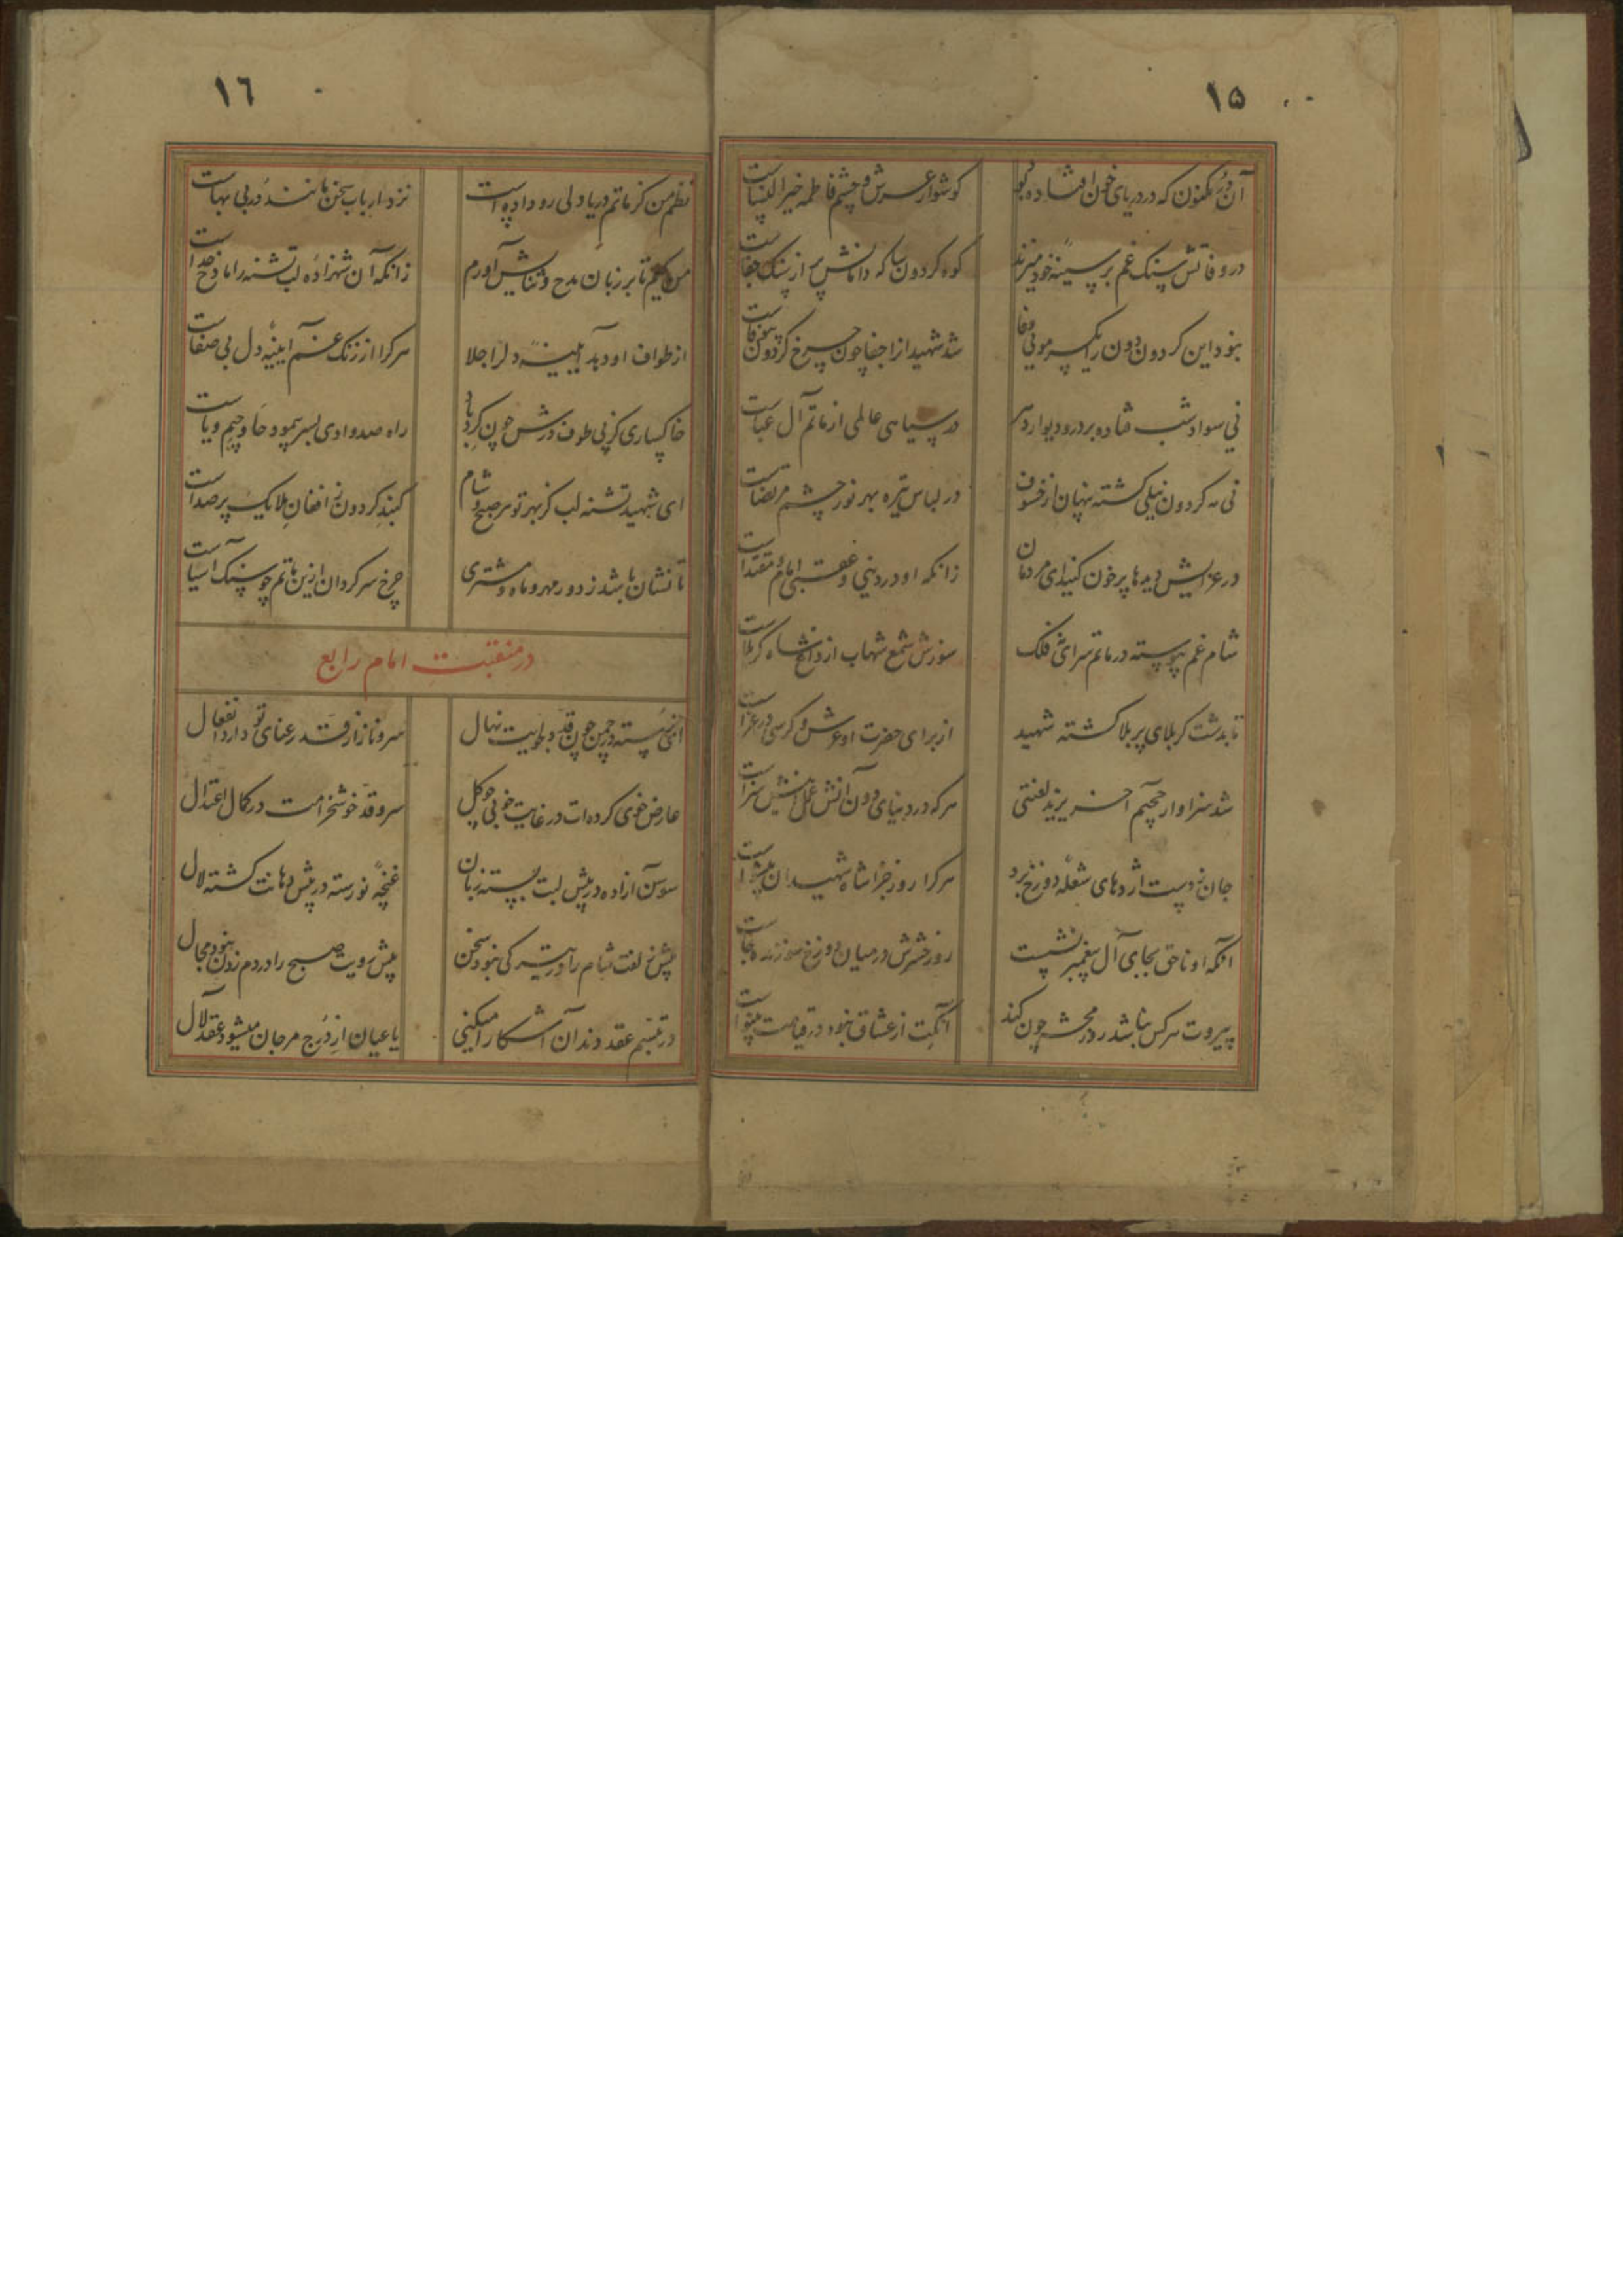 ١۵
آن در مکنون که در دریای خون افتاده بود
کوشوار عرش و چشم فاطمه خیر النساست
در وفاتش سنک غم بر سینه خود میزند
کوه کردون سا که دامانش پر از سنک جفاست
نبود این کردون دون را یکسر مویی وفا
شد شهید از اجفا چون چرخ کردون بیوفاست
نی سواد شب فتاده بر در و دیوار دهر
در سیاهی عالمی از ماتم آل عباست
نی مه کردون نیلی کشته پنهان از خسوف
در لباس تیره بهر نور چشم مرتضاست
در عزایش دیدها پر خون کنید ای مردمان
زانکه او در دینی و عقبی امام و مقتداست
شام غم پیوسته در ماتم سرای فلک
سوزش شمع شهاب از داغ شاه کربلاست
تا بدشت کربلای پر بلا کشته شهید
از برای حضرت او عرش و کرسی در عزاست
شد سزاوار جحیم آخر یزید لعنتی
هر که در دنیای دون آنش عمل اینش سزاست
جان ز دست اژدهای شعله دوزخ نبرد
هر کرا روز جزا شاه شهیدان پیشواست
آنکه او ناحق بجای آل پیغمبر نشست
روز حشرش در میان دوزخ سوزنده جاست
پیروت سرکس نباشد در محشر چون کند
آنکت از عشاق نبود در قیامت بینواست
١٦
نظم من کز ماتم دریا دلی رو داده است
نزد ارباب سخن مانند در بی بهاست
من کیم تا بر زبان مدح و ثنایش آورم
زانکه آن شهزاده لب تشنه را مادح خداست
از طواف او دهد آیینه دل را جلا
هر کرا از زنک غم آیینه دل بی صفاست
خاکساری کز پی طوف درش چون کردباد
راه صد وادی بسر پیمود حا و چیم و یاست
ای شهید تشنه لب کز بهر تو هر صبح و شام
کنبد کردون ز افغان ملایک پر صداست
تا نشان باشد ز دور مهر و ماه و مشتری
چرخ سرکردان ازین ماتم چو سنک آسیاست
در منقبت امام رابع
ای نرسته در چمن چون قد دلجویت نهال
سرو ناز از قد رعنای تو دارد انفعال
عارض خوی کرده ات در غایت خوبی چو کل
سرو قد خوشخرامت در کمال اعتدال
سوسن آزاده در پیش لبت بسته زبان
غنچه نورسته در پیش دهانت کشته لال
پیش زلفت شام را در تیرکی نبود سخن
پیش رویت صبح را در دم زدن نبود مجال
در تبسم عقد دندان آشکارا میکنی
یا عیان از درج مرجان میشود عقد لآل